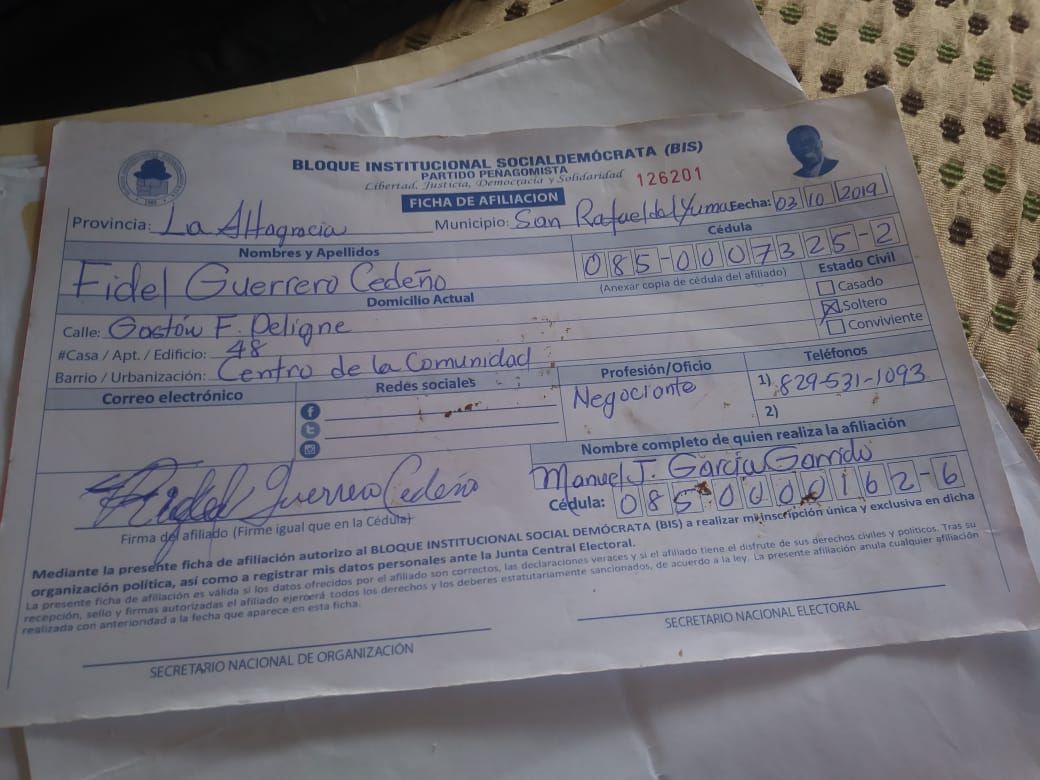 BLOQUE INSTITUCIONAL SOCIALDEMÓCRATA (BIS)
PARTIDO PEÑAGOMISTA
Libertad, Justicia, Democracia y Solidaridad
126201
FICHA DE AFILIACION
Provincia: La Altagracia Municipio: San Rafael del Yuma Fecha: 03 10 2019
Nombres y Apellidos
Cédula
Fidel Guerrero Cedeño
085-0007325-2
(Anexar copia de cédula del afiliado)
Estado Civil
Domicilio Actual
Casado
Calle: Gastón F. Deligne
Soltero
#Casa / Apt. / Edificio: 48
Conviviente
Barrio / Urbanización: Centro de la Comunidad
Correo electrónico
Redes sociales
Profesión/Oficio
Teléfonos
Negociante
1) 829-531-1093
2)
Nombre completo de quien realiza la afiliación
Manuel J. García Garrido
Cédula: 085 0000162-6
Fidel Guerrero Cedeño
Firma del afiliado (Firme igual que en la Cédula)
Mediante la presente ficha de afiliación autorizo al BLOQUE INSTITUCIONAL SOCIAL DEMÓCRATA (BIS) a realizar mi inscripción única y exclusiva en dicha
organización política, así como a registrar mis datos personales ante la Junta Central Electoral.
La presente ficha de afiliación es válida si los datos ofrecidos por el afiliado son correctos, las declaraciones veraces y si el afiliado tiene el disfrute de sus derechos civiles y políticos. Tras su
recepción, sello y firmas autorizadas el afiliado ejercerá todos los derechos y los deberes estatutariamente sancionados, de acuerdo a la ley. La presente afiliación anula cualquier afiliación
realizada con anterioridad a la fecha que aparece en esta ficha.
SECRETARIO NACIONAL DE ORGANIZACIÓN
SECRETARIO NACIONAL ELECTORAL